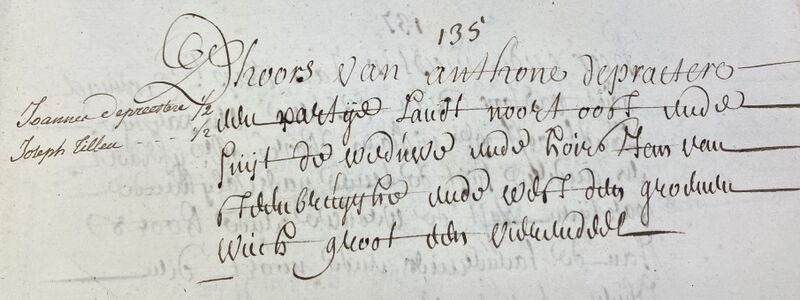 135
Dhoors van anthone depraetere
Joannes depreester 1/2
Joseph Tilleu 1/2
een partije landt noort oost ende
suijt de weduwe ende hoirs Jan van
steenbrugghe ende west den groenen
wech groot een vierendeel